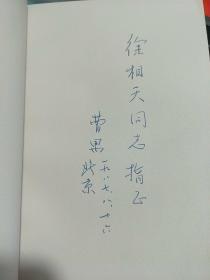 徐相天同志指正
曹禺
一九八七.八.十六
北京